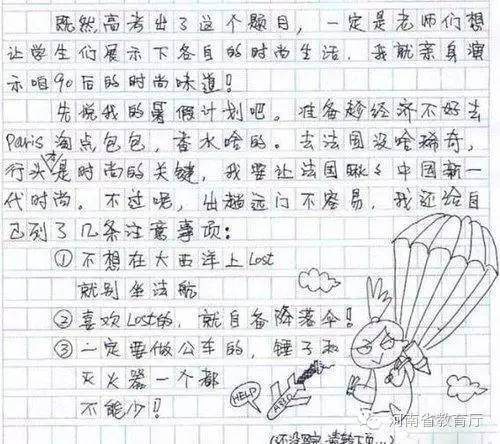 既然高考出了这个题目，一定是老师们想
让学生们展示下各自的时尚生活，我就亲身演
示咱90后的时尚味道！
先说我的暑假计划吧。准备趁经济不好去
Paris淘点包包，香水啥的。去法国没啥稀奇，
行头才是时尚的关键，我要让法国瞅瞅中国新一
代时尚。不过呢，出趟远门不容易，我还给自
己列了几条注意事项：
①不想在大西洋上Lost
就别坐法航
②喜欢Lost的，就自备降落伞！
③一定要做公车的，锤子和
灭火器一个都
不能少！
HELP
河南省教育厅
(还没写完，请转下页...)